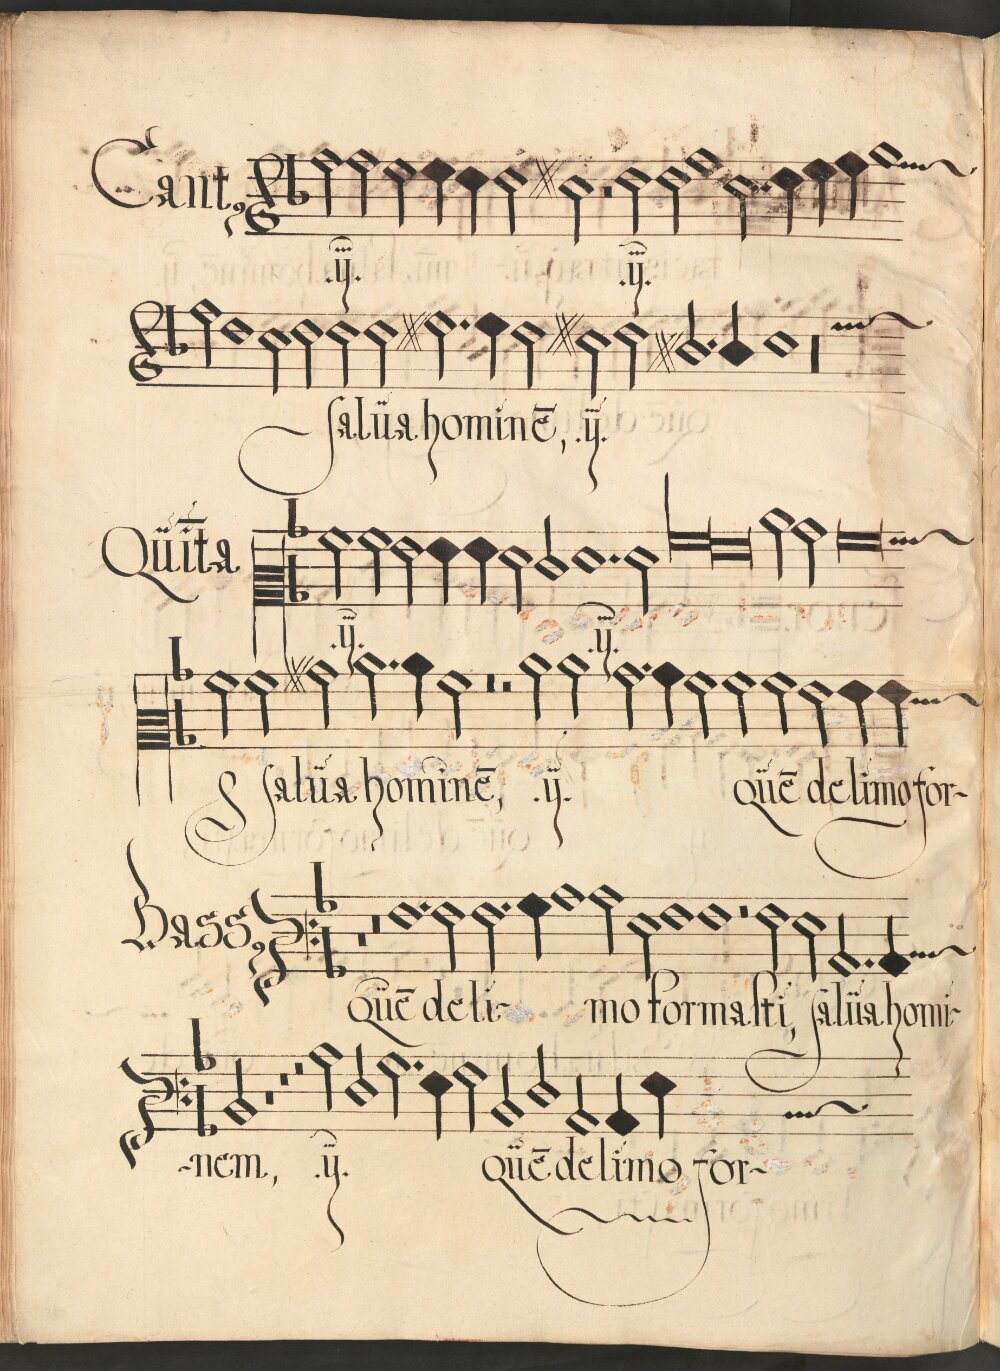 Cant9
.ij. .ij.
salüa hominē, .ij.
Qüīta
.ij. .ij.
salüa hominē, .ij. qüē de limo for-
Bass9
qüē de li- mo formasti, salüa homi-
-nem, .ij. qüē de limo for-